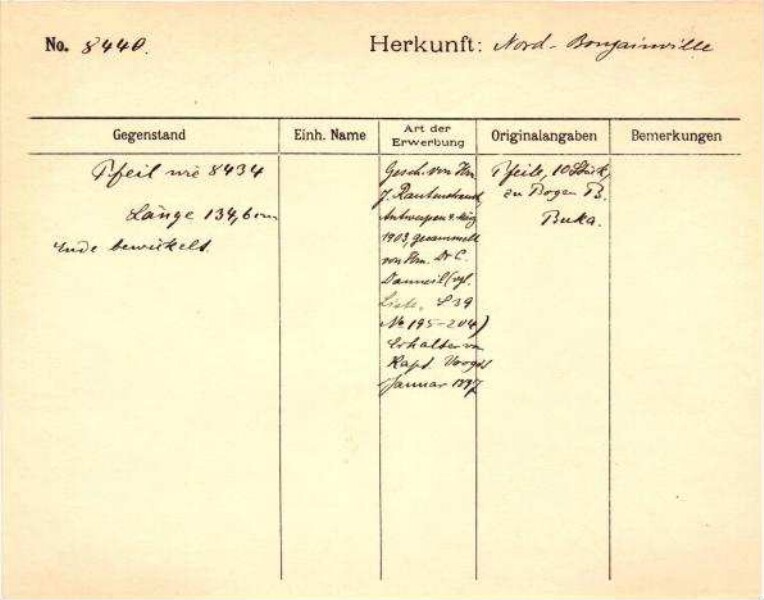 No. 8440.
Herkunft: Nord-Bougainville
Gegenstand
Einh. Name
Art der Erwerbung
Originalangaben
Bemerkungen
Pfeil wie 8434
Länge 134,6 cm
Ende bewickelt.
Gesch. von Hrn
J. Rautenstrauch
Antwerpen
1903, gesammelt
von Hrn. Dr C.
Danneil (vgl.
Liste, S 39
No 195-204)
Erhalten von
Kapt.
Januar 1897
Pfeile, 10 Stück,
zu Bogen B.
Buka.